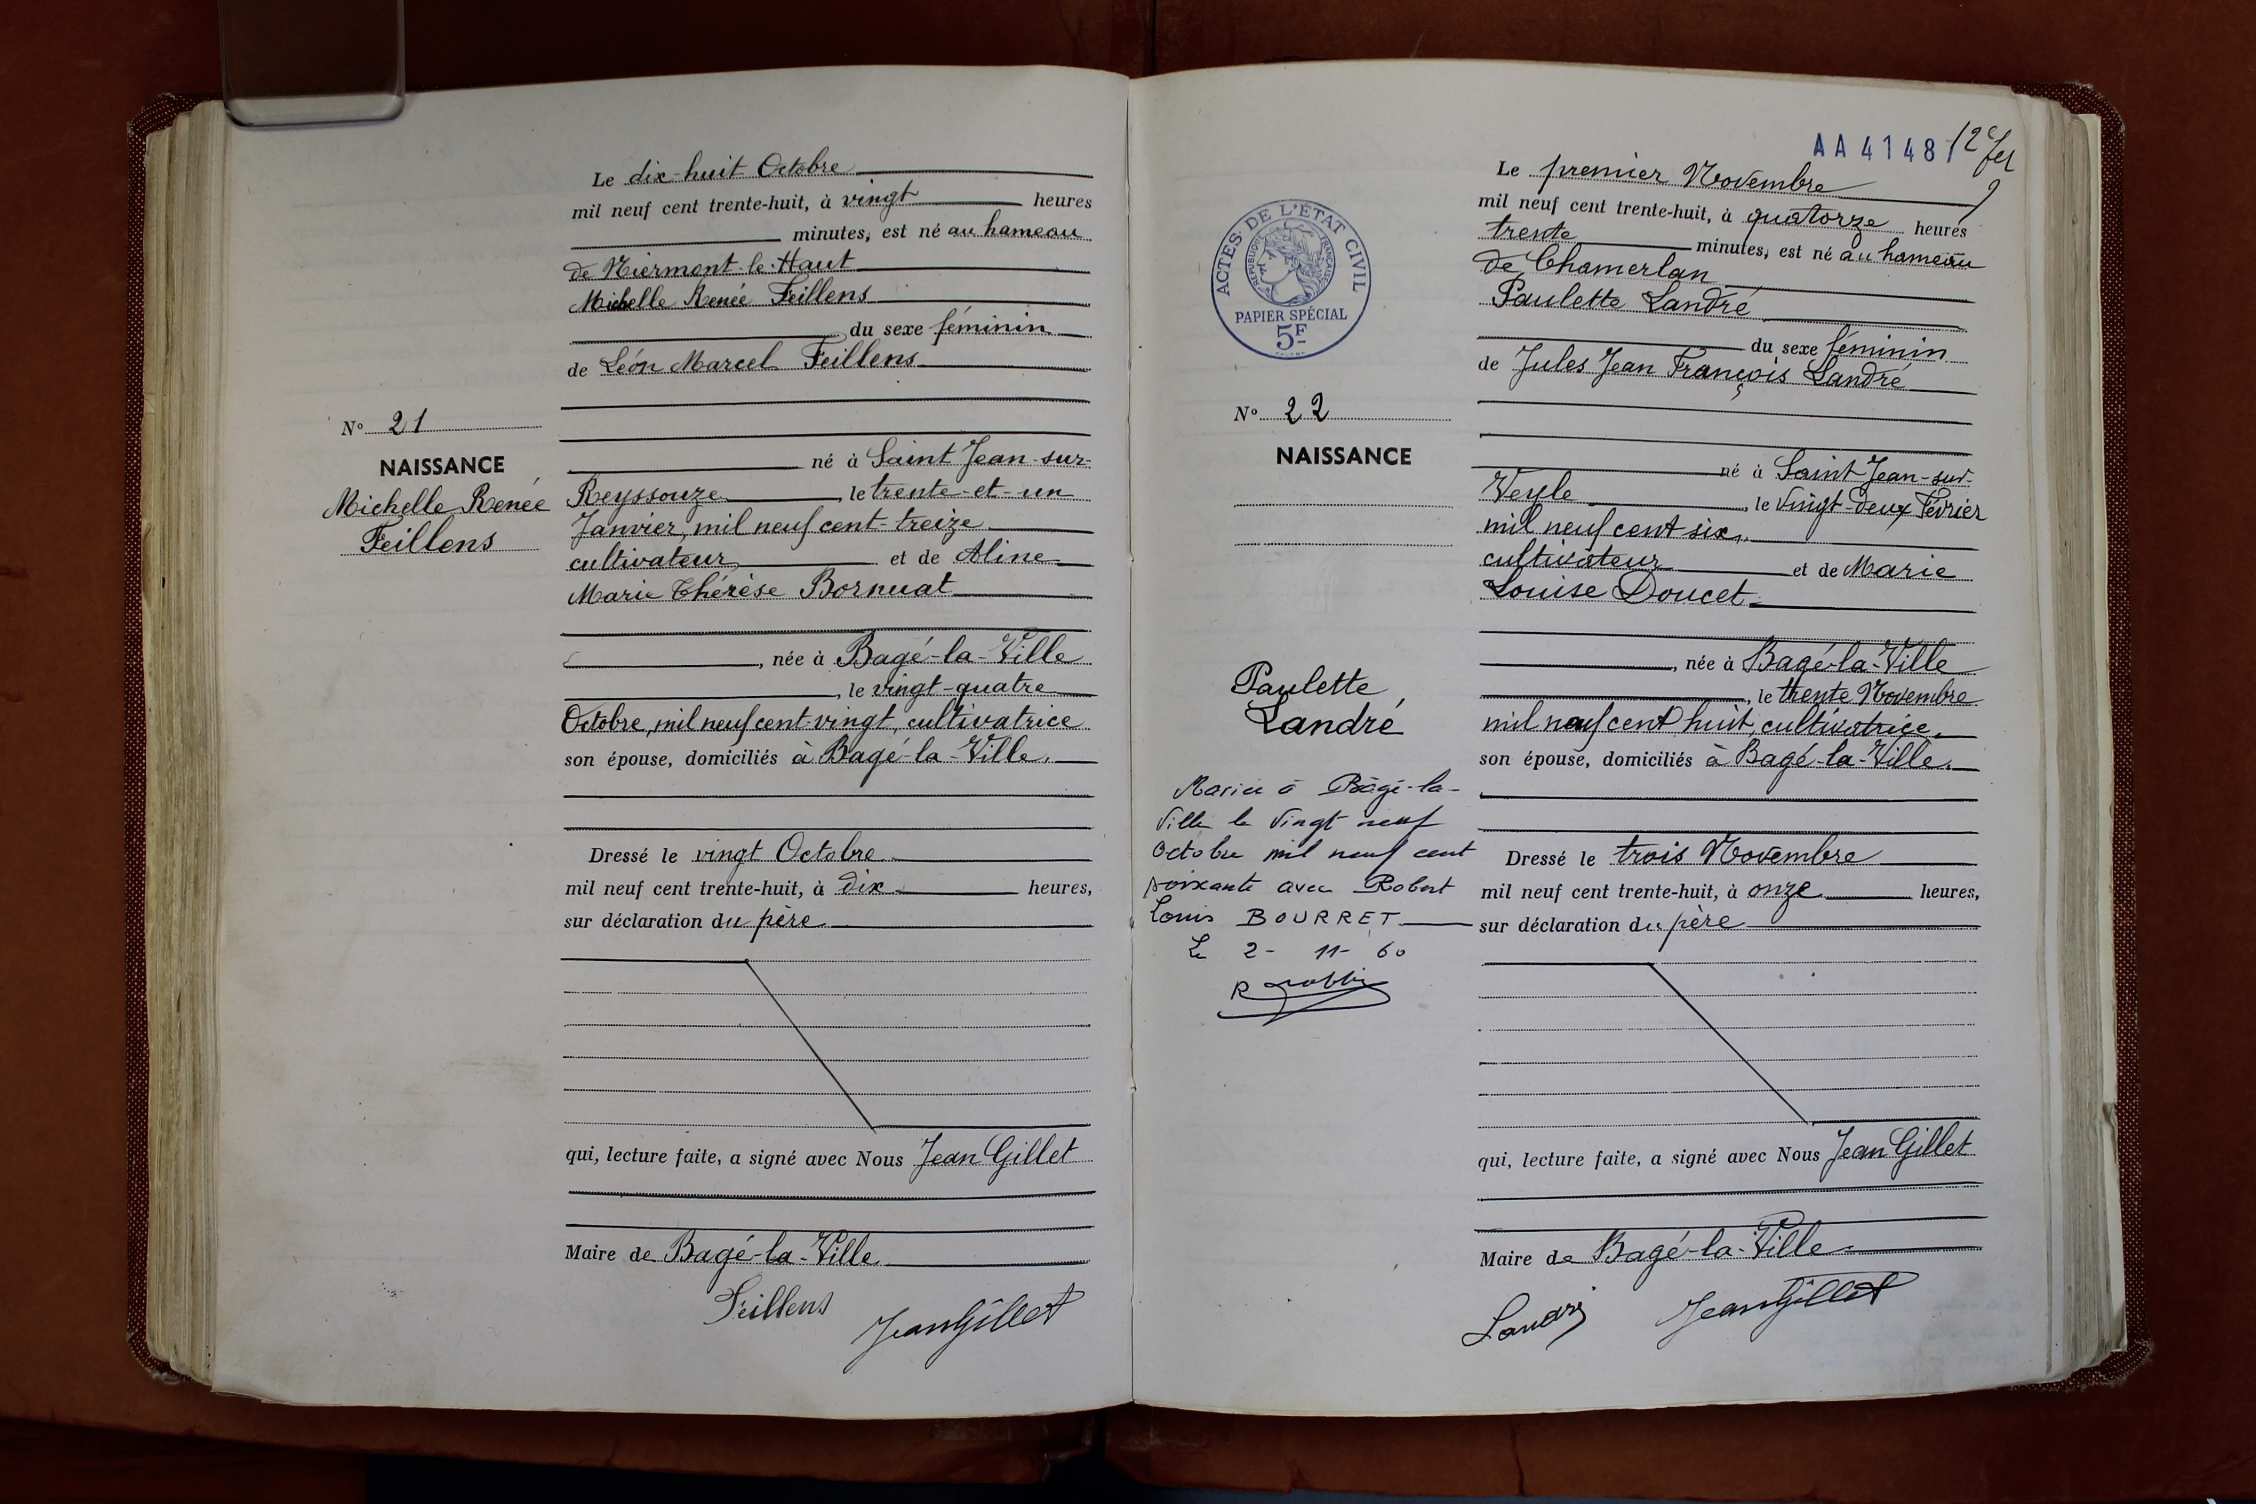 Le dix-huit Octobre
mil neuf cent trente-huit, à vingt heures
minutes, est né au hameau
de Niermont-le-Haut
Michelle Renée Feillens
du sexe féminin
de Léon Marcel Feillens
né à Saint Jean-sur-
Reyssouze, le trente-et-un
Janvier, mil neuf cent-treize
cultivateur, et de Aline
Marie Thérèse Bornuat
, née à Bagé-la-Ville
, le vingt-quatre
Octobre, mil neuf cent-vingt, cultivatrice
son épouse, domiciliés à Bagé-la-Ville.
Dressé le vingt Octobre
mil neuf cent trente-huit, à dix heures,
sur déclaration du père.
qui, lecture faite, a signé avec Nous Jean Gillet
Maire de Bagé-la-Ville
Feillens
Jean Gillet
No 21
NAISSANCE
Michelle Renée
Feillens
AA 41481
12
ACTES DE L'ÉTAT CIVIL
RÉPUBLIQUE FRANÇAISE
PAPIER SPÉCIAL
5F
No 22
NAISSANCE
Paulette
Landré
Mariée à Bâgé-la-
Ville le vingt neuf
octobre mil neuf cent
soixante avec Robert
Louis BOURRET
Le 2 - 11 - 60
Le premier Novembre
mil neuf cent trente-huit, à quatorze heures
trente minutes, est né au hameau
de Chamerlan
Paulette Landré
du sexe féminin
de Jules Jean François Landré
né à Saint Jean-sur-
Veyle, le vingt-deux Février
mil neuf cent six,
cultivateur et de Marie
Louise Doucet
, née à Bagé-la-Ville
, le trente Novembre
mil neuf cent huit, cultivatrice,
son épouse, domiciliés à Bagé-la-Ville.
Dressé le trois Novembre
mil neuf cent trente-huit, à onze heures,
sur déclaration du père
qui, lecture faite, a signé avec Nous Jean Gillet
Maire de Bagé-la-Ville
Landré
Jean Gillet